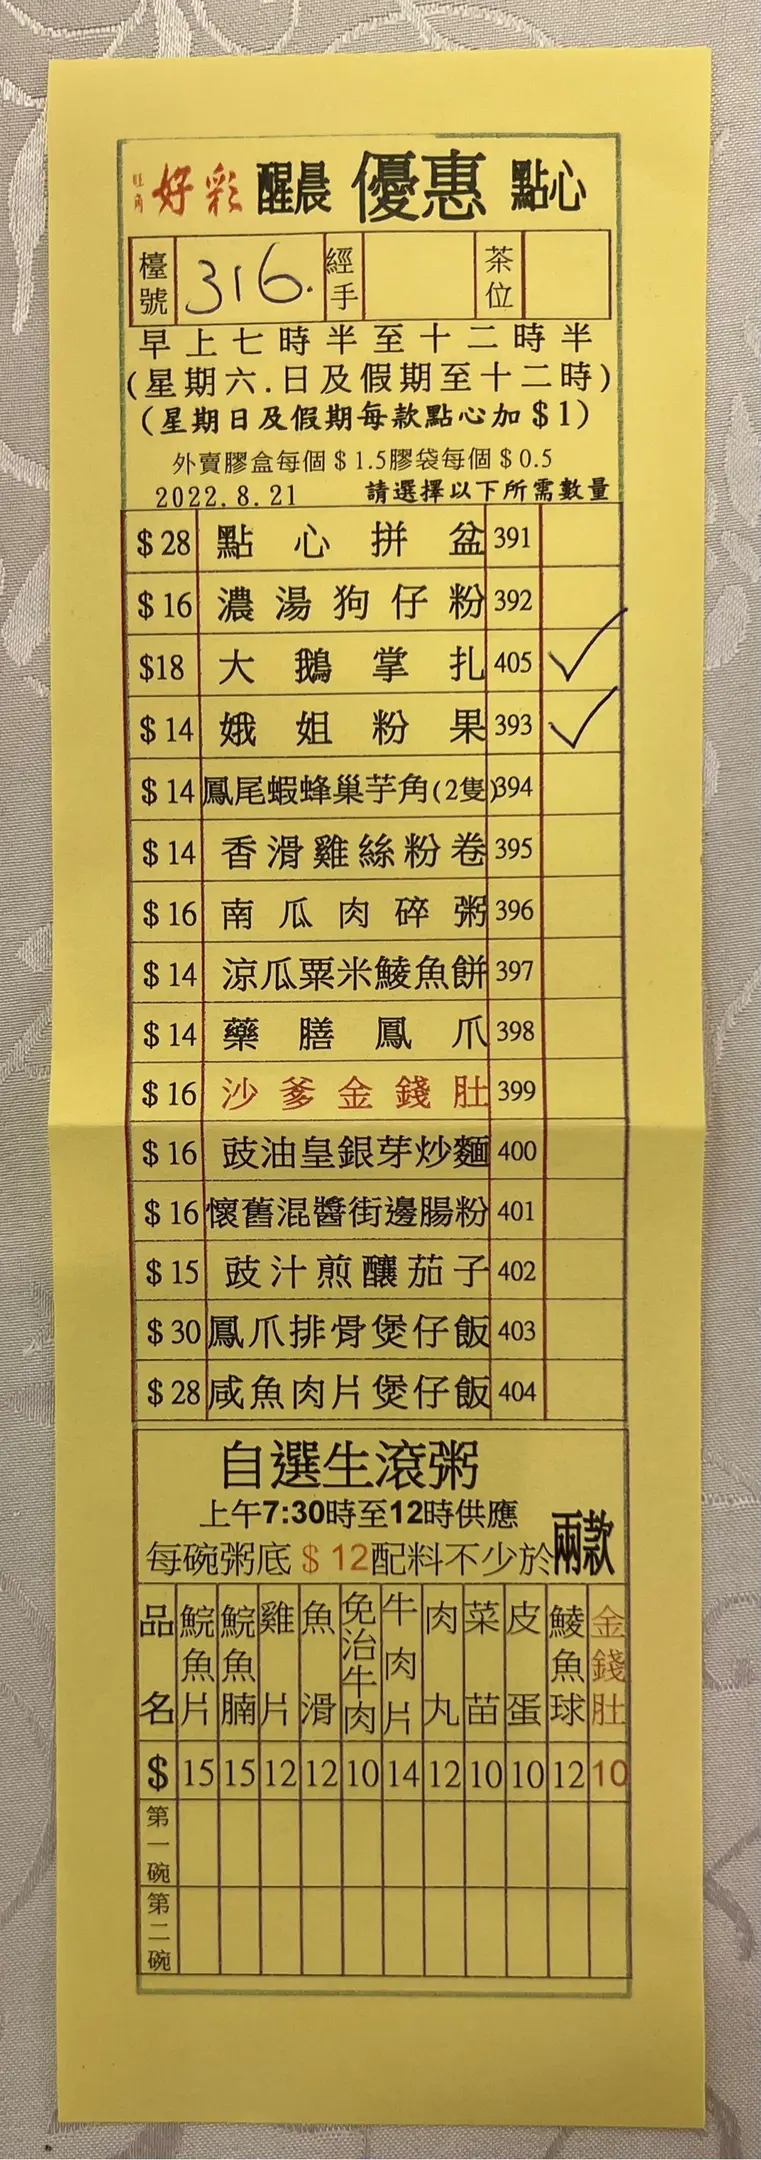 旺角 好彩 醒晨 優惠 點心
檯號 316. 經手 茶位
早上七時半至十二時半
(星期六.日及假期至十二時)
(星期日及假期每款點心加$1)
外賣膠盒每個$1.5膠袋每個$0.5
2022.8.21 請選擇以下所需數量
$28 點心拼盆 391
$16 濃湯狗仔粉 392
$18 大鵝掌扎 405
$14 娥姐粉果 393
$14 鳳尾蝦蜂巢芋角(2隻) 394
$14 香滑雞絲粉卷 395
$16 南瓜肉碎粥 396
$14 涼瓜粟米鯪魚餅 397
$14 藥膳鳳爪 398
$16 沙爹金錢肚 399
$16 豉油皇銀芽炒麵 400
$16 懷舊混醬街邊腸粉 401
$15 豉汁煎釀茄子 402
$30 鳳爪排骨煲仔飯 403
$28 咸魚肉片煲仔飯 404
自選生滾粥
上午7:30時至12時供應
每碗粥底$12配料不少於兩款
品名 鯇魚片 鯇魚腩 雞片 魚滑 免治牛肉 牛肉片 肉丸 菜苗 皮蛋 鯪魚球 金錢肚
$ 15 15 12 12 10 14 12 10 10 12 10
第一碗
第二碗